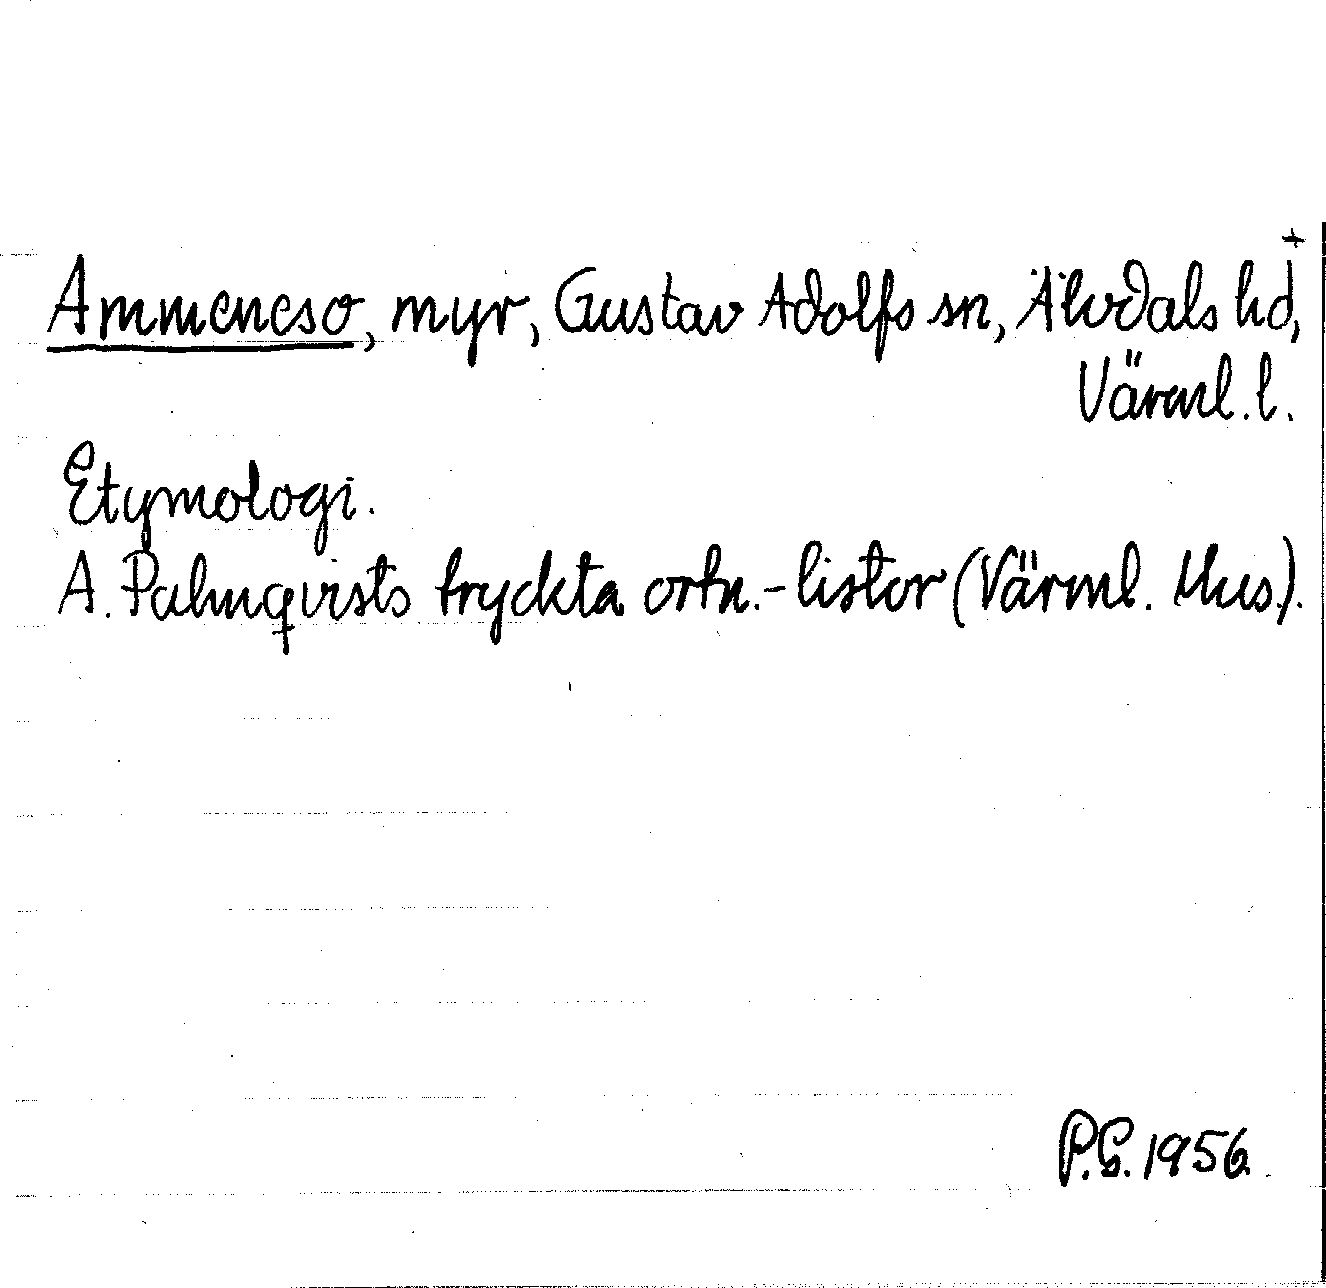 +
Ammeneso, myr, Gustav Adolfs sn, Älvdals hd,
Värml. l.
Etymologi.
A. Palmqvists tryckta ortn.-listor (Värml. Mus.).
P.G. 1956.